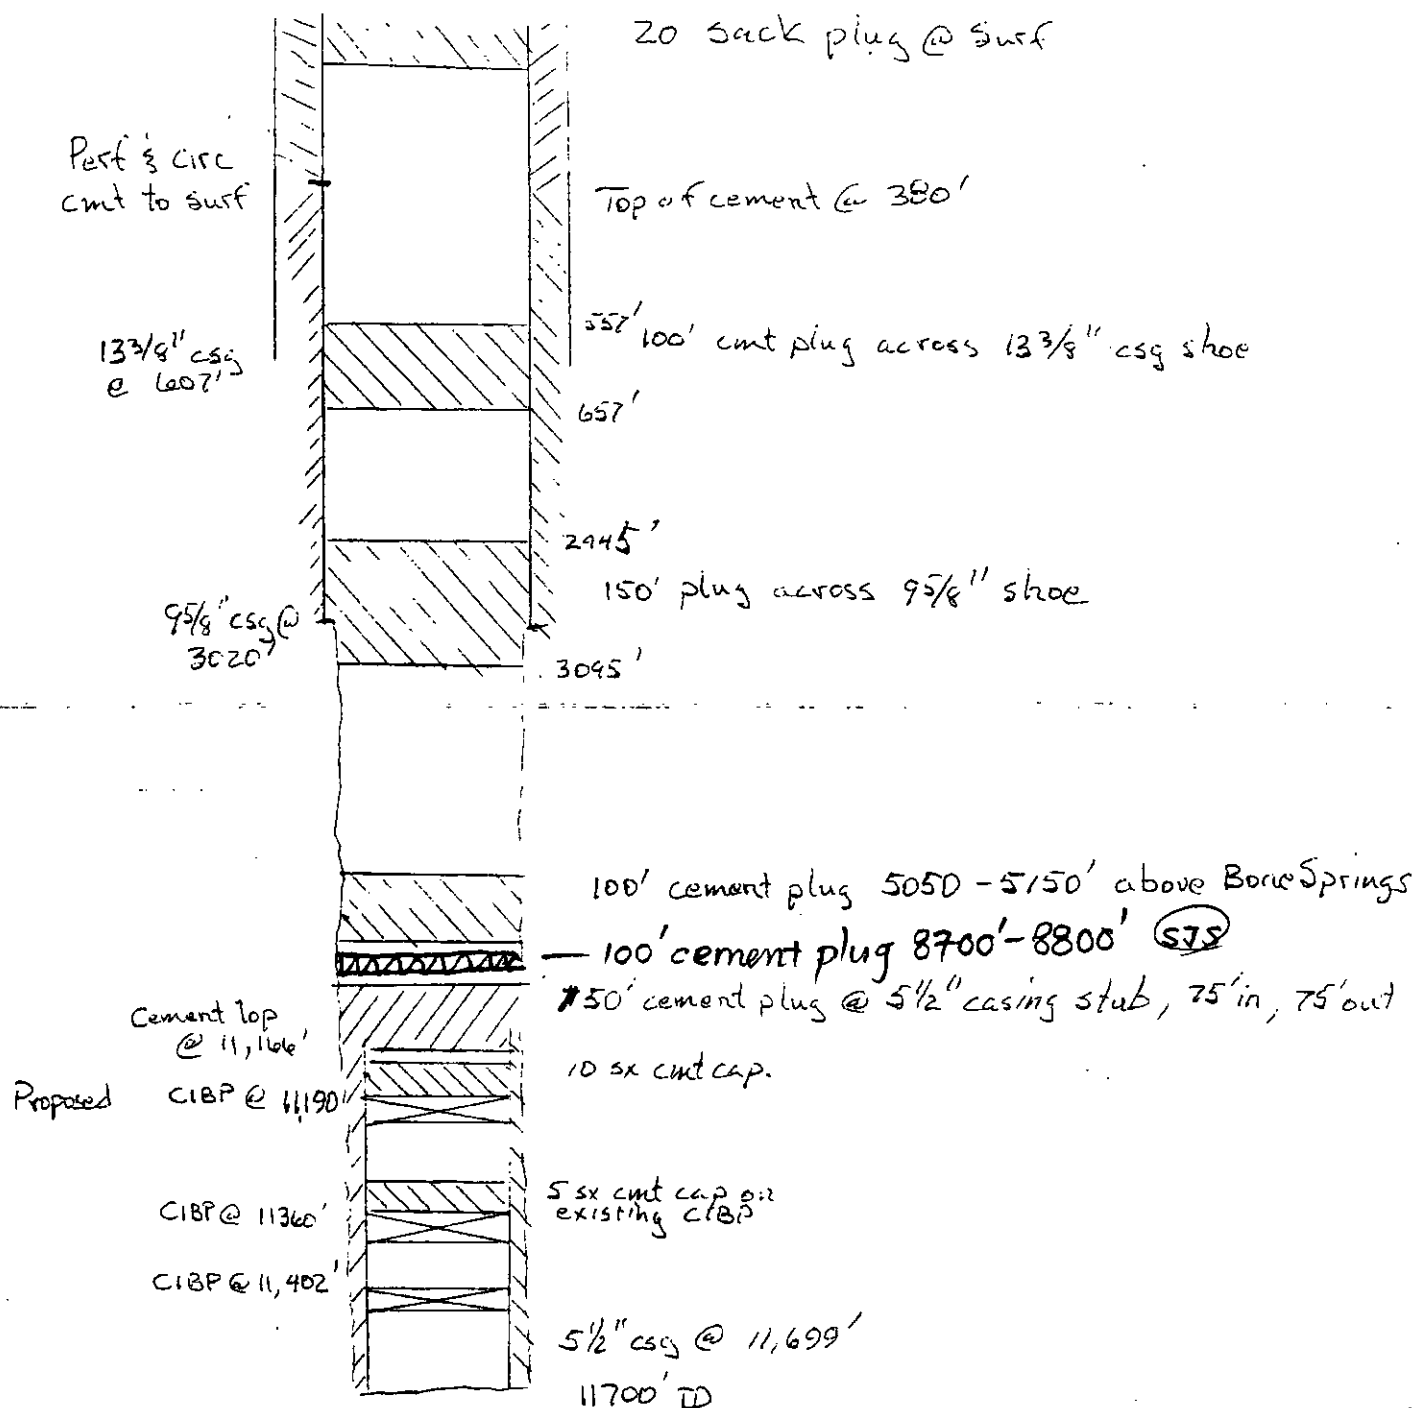 20 sack plug @ surf
Perf & circ
cmt to surf
Top of cement @ 380'
557'
100' cmt plug across 13 3/8" csg shoe
13 3/8" csg
@ 607'
657'
2945'
150' plug across 9 5/8" shoe
9 5/8" csg @
3020'
3095'
100' cement plug 5050 - 5150' above Bone Springs
100' cement plug 8700' - 8800' SJS
150' cement plug @ 5 1/2" casing stub, 75' in, 75' out
Cement Top
@ 11,166'
10 sx cmt cap.
Proposed CIBP @ 11,190'
5 sx cmt cap on
existing CIBP
CIBP @ 11360'
CIBP @ 11,402'
5 1/2" csg @ 11,699'
11700' TD